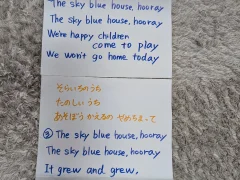 The sky blue house, hooray
The sky blue house, hooray
We're happy children
come to play
We won't go home today
そらいろのうち
たのしい うち
あそぼう かえるの やめちまって
② The sky blue house, hooray
The sky blue house, hooray
It grew and grew,